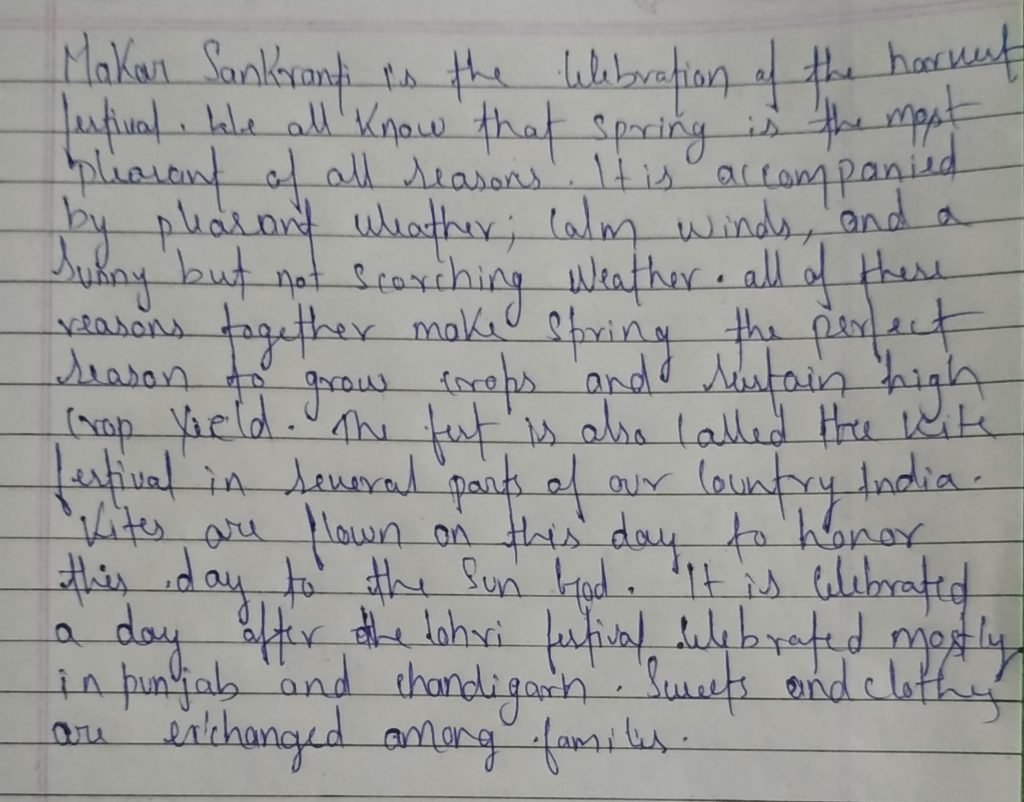 Makar Sankranti is the celebration of the harvest
festival. We all know that spring is the most
pleasant of all seasons. It is accompanied
by pleasant weather, calm winds, and a
sunny but not scorching weather. all of these
reasons together make spring the perfect
season to grow crops and sustain high
crop yield. The fest is also called the kite
festival in several parts of our country India.
Kites are flown on this day to honor
this day to the Sun God. It is celebrated
a day after the lohri festival celebrated mostly
in punjab and chandigarh. Sweets and clothy
are exchanged among families.